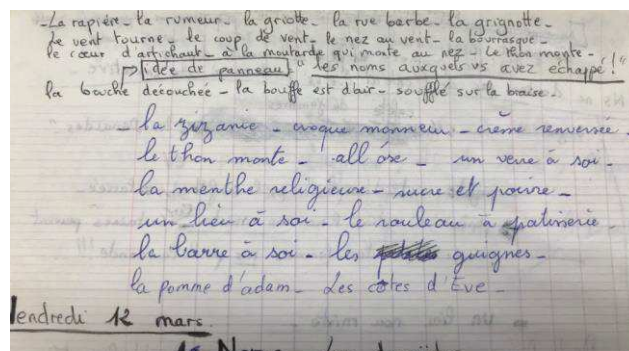 -La rapière- la rumeur- la griotte- la rue barbe- la grignotte-
Le vent tourne- le coup de vent- le nez au vent- la bourrasque-
le cœur d'artichaut- à la moutarde qui monte au nez- Le thon monte-
idée de panneau "les noms auxquels vs avez échappé!"
la bouche décousue- la bouffe est d'air- soufflé sur la braise-
- la zizanie - croque monneur - crème renversée.
le thon monte - all ose - un verre à soi -
la menthe religieuse - sucre et poivre -
un lieu à soi - le rouleau à patisserie -
la barre à soi - les guignes -
la pomme d'adam - Les côtes d'Eve -
Vendredi 12 mars.